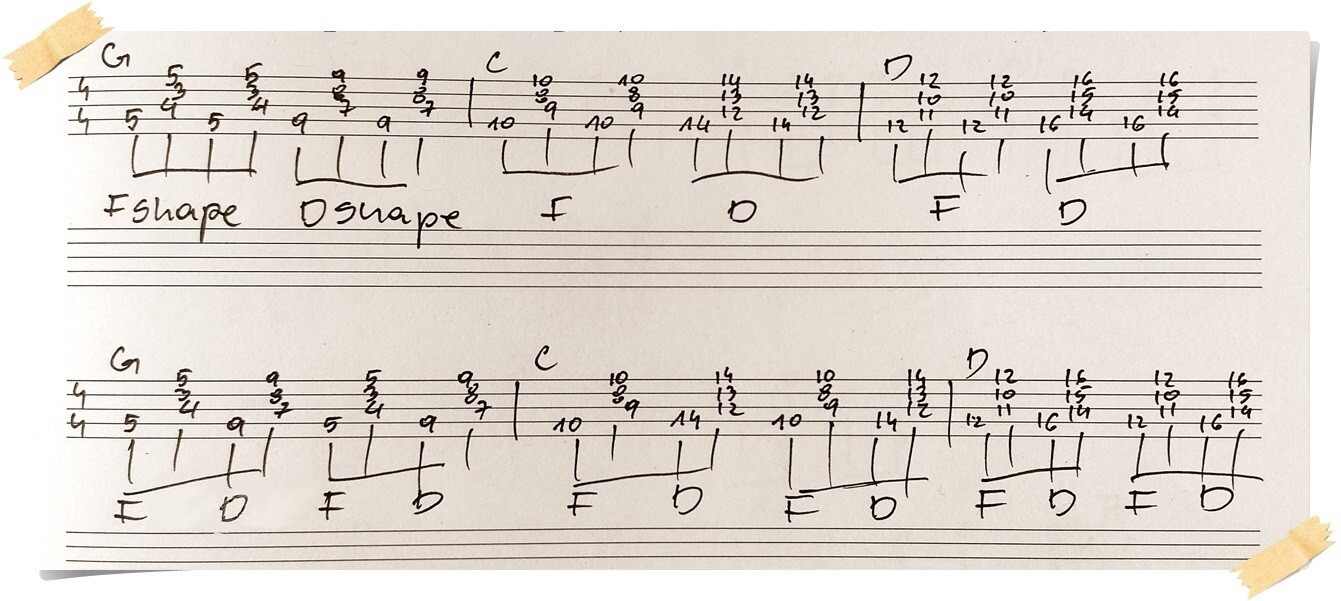 G C D
5 5 9 9 10 10 14 14 12 12 16 16
4 3 3 8 8 8 8 13 13 10 10 15 15
4 4 7 7 9 9 12 12 11 11 14 14
4 5 5 9 9 10 10 14 14 12 12 16 16
F shape D shape F D F D
G C D
5 9 5 9 10 14 10 14 12 16 12 16
4 3 8 3 8 8 13 8 13 10 15 10 15
4 7 4 7 9 12 9 12 11 14 11 14
4 5 9 5 9 10 14 10 14 12 16 12 16
F D F D F D F D F D F D